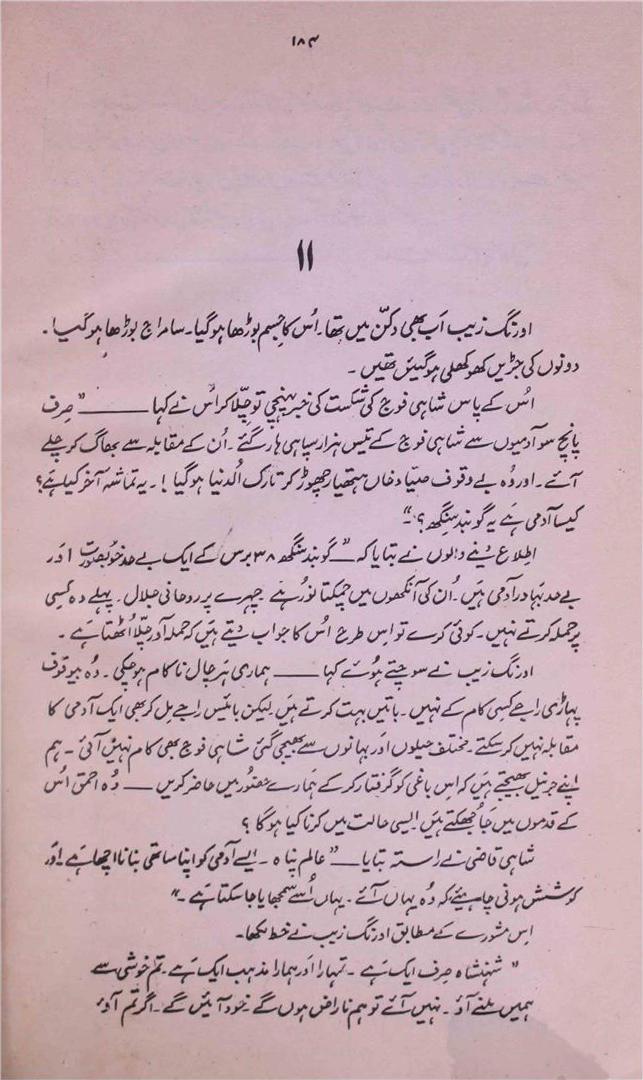 ۱۸۴
۱۱
اورنگ زیب اَب بھی دکنّ میں تھا۔ اُس کا جسم بوڑھا ہوگیا۔ سامراج بوڑھا ہوگیا۔
دونوں کی جڑیں کھوکھلی ہوگیئں تھیں ۔
اُس کے پاس شاہی فوج کی شکست کی خبر پہنچی تو چلّا کر اُس نے کہا ——— ”صِرف
پانچ سو آدمیوں سے شاہی فوج کے تیس ہزار سپاہی ہار گئے ۔ اُن کے مقابلہ سے بھاگ کر چلے
آئے ۔ اور وُہ بے وقوف صیّاد خاں ہتھیار چھوڑ کر تارک الدنیا ہوگیا !۔ یہ تماشہ آخر کیا ہَے؟
کیسا آدمی ہَے یہ گوبند سنگھ ؟۔“
اطلاع دینے والوں نے بتایا کہ — ”گوبند سنگھ ۳۸ برس کے ایک بے حد خوبصورت اور
بے حد بہادر آدمی ہیں۔ اُن کی آنکھوں میں چمکتا نوُر ہَے ۔ چہرے پر روحانی جلال ۔ پہلے وہ کسی
پر حملہ کرتے نہیں ۔ کوئی کرے تو اِس طرح اُس کا جواب دیتے ہیں کہ حملہ آور چلّا اُٹھتا ہَے ۔
اورنگ زیب نے سوچتے ہوُئے کہا ——— ہماری ہَر چال ناکام ہوچکی ۔ وُہ بیوقوف
پہاڑی راجے کسی کام کے نہیں ۔ باتیں بہت کرتے ہَیں ۔ لیکن بائیس راجے مِل کر بھی ایک آدمی کا
مقابلہ نہیں کرسکتے ۔ مختلف حیلوں اَور بہانوں سے بھیجی گئی شاہی فوج بھی کام نہیں آئی ۔ ہم
اپنے جرنیل بھیجتے ہَیں کہ اِس باغی کو گرفتار کر کے ہَمارے حضور میں حاضر کریں — وُہ احمق اُس
کے قدموں میں جا جُھکتے ہَیں۔ ایسی حالت میں کرنا کیا ہوگا ؟
شاہی قاضی نے راستہ بتایا — ”عالم پناہ ۔ ایسے آدمی کو اپنا ساتھی بنانا اچھا ہَے ۔ اور
کوشش ہونی چاہیئے کہ وُہ یہاں آئے ۔ یہاں اُسے سمجھایا جاسکتا ہَے ۔“
اس مشورے کے مطابق اورنگ زیب نے خط لکھا۔
”شہنشاہ صِرف ایک ہَے ۔ تمہارا اَور ہمارا مذہب ایک ہَے ۔ تم خوشی سے
ہمیں ملنے آؤ ۔ نہیں آئے تو ہم ناراض ہوں گے ۔ خود آئیں گے ۔ اگر تم آؤ